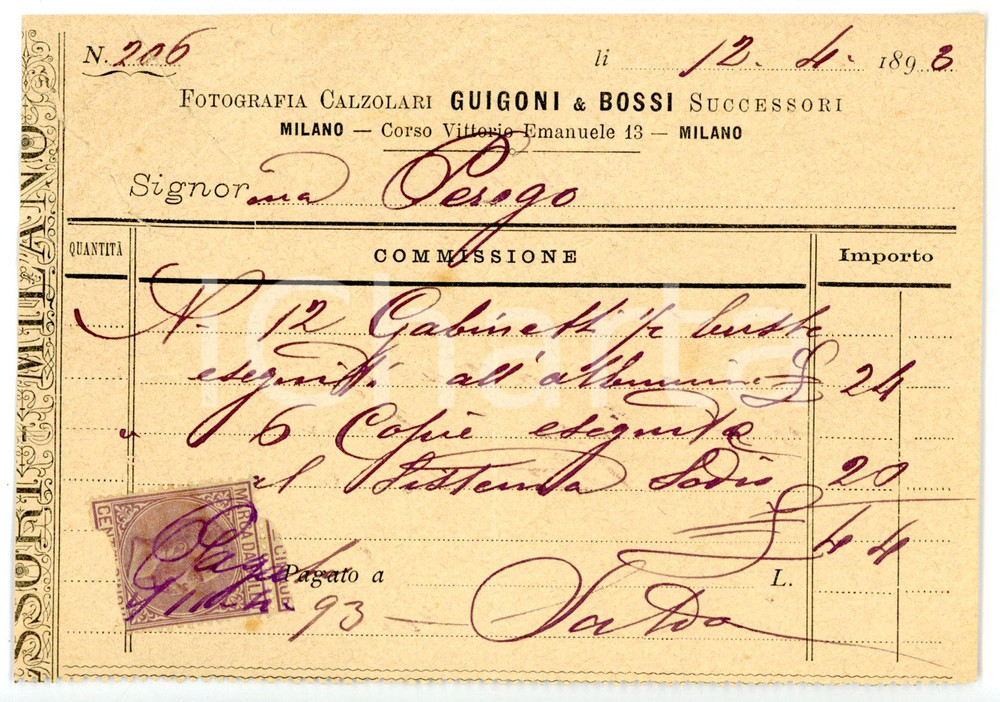 N. 206 li 12. 4. 1893
FOTOGRAFIA CALZOLARI GUIGONI & BOSSI SUCCESSORI
MILANO — Corso Vittorio Emanuele 13 — MILANO
Signorina Perego
QUANTITÀ COMMISSIONE Importo
N. 12 Gabinetti ½ busto
eseguiti all'albumina £ 24
" 6 Copie eseguite
al Sistema Sodio 20
£ 44
Pagato a L.
93 — Saldo
MARCA DA BOLLO
SSORI MILANO
iCharta